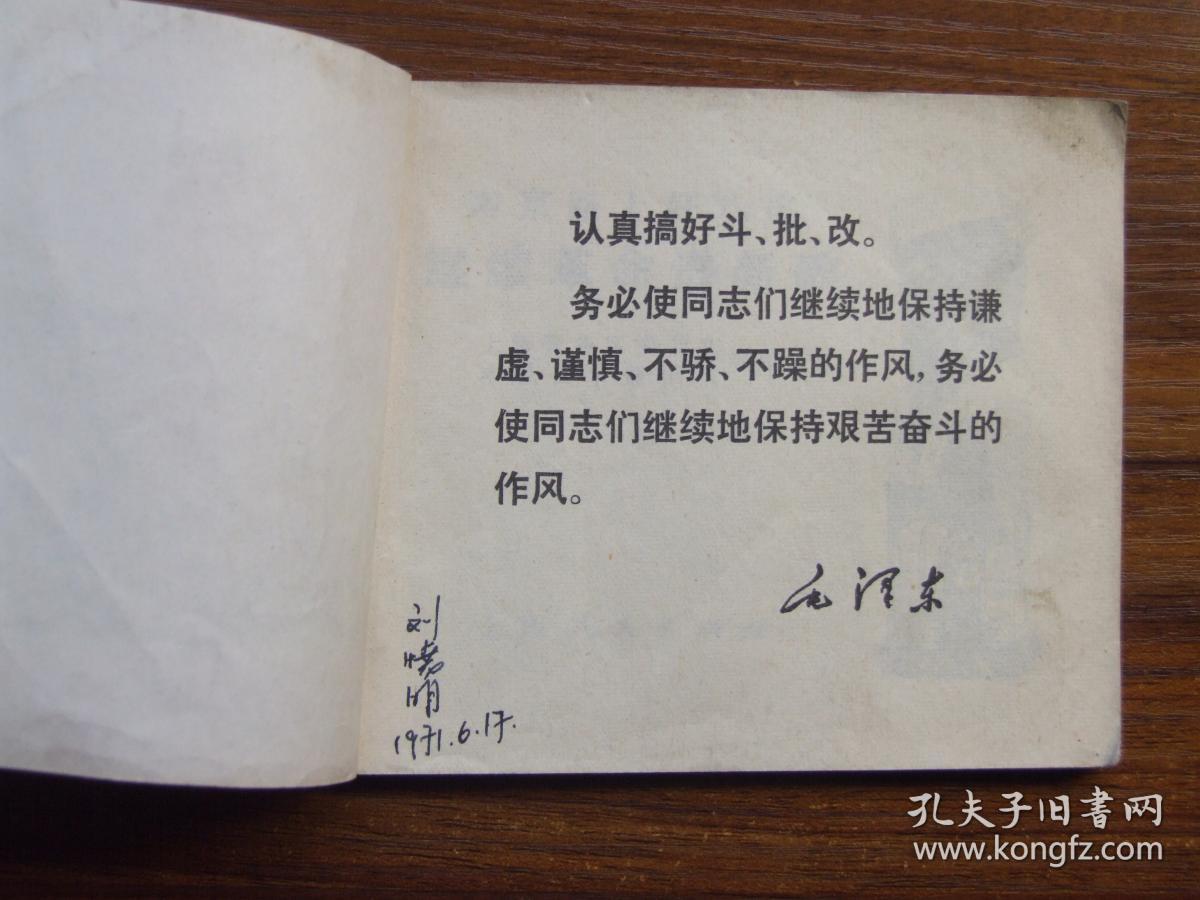 认真搞好斗、批、改。
务必使同志们继续地保持谦
虚、谨慎、不骄、不躁的作风，务必
使同志们继续地保持艰苦奋斗的
作风。
毛泽东
刘
晓
明
1971.6.17.
孔夫子旧书网
www.kongfz.com